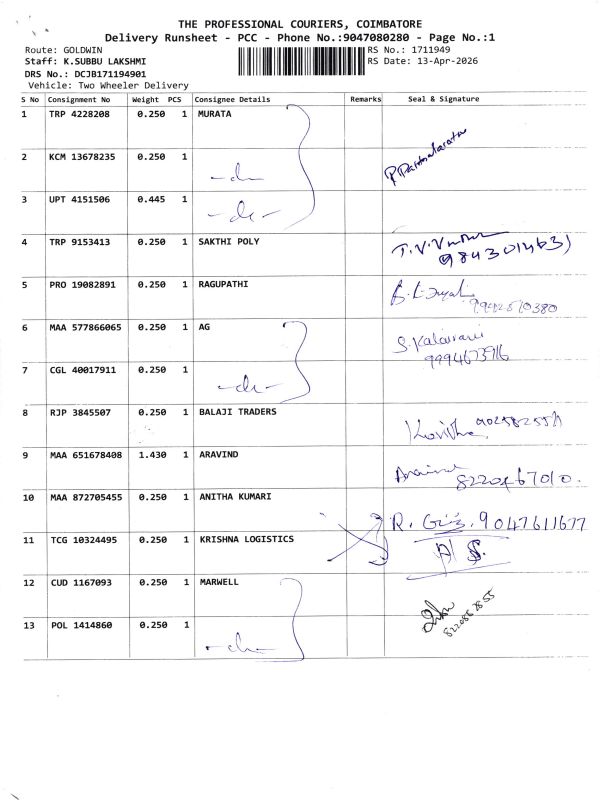 THE PROFESSIONAL COURIERS, COIMBATORE
Delivery Runsheet - PCC - Phone No.:9047080280 - Page No.:1
Route: GOLDWIN RS No.: 1711949
Staff: K.SUBBU LAKSHMI RS Date: 13-Apr-2026
DRS No.: DCJB171194901
Vehicle: Two Wheeler Delivery
S No Consignment No Weight PCS Consignee Details Remarks Seal & Signature
1 TRP 4228208 0.250 1 MURATA
2 KCM 13678235 0.250 1 -do-
3 UPT 4151506 0.445 1 -do-
4 TRP 9153413 0.250 1 SAKTHI POLY T.V.
9843014631
5 PRO 19082891 0.250 1 RAGUPATHI
9942570380
6 MAA 577866065 0.250 1 AG S.Kalaivani
9994673916
7 CGL 40017911 0.250 1 -do-
8 RJP 3845507 0.250 1 BALAJI TRADERS Kavitha
9 MAA 651678408 1.430 1 ARAVIND
8220467010.
10 MAA 872705455 0.250 1 ANITHA KUMARI R. 9047611677
11 TCG 10324495 0.250 1 KRISHNA LOGISTICS
12 CUD 1167093 0.250 1 MARWELL
13 POL 1414860 0.250 1 -do-